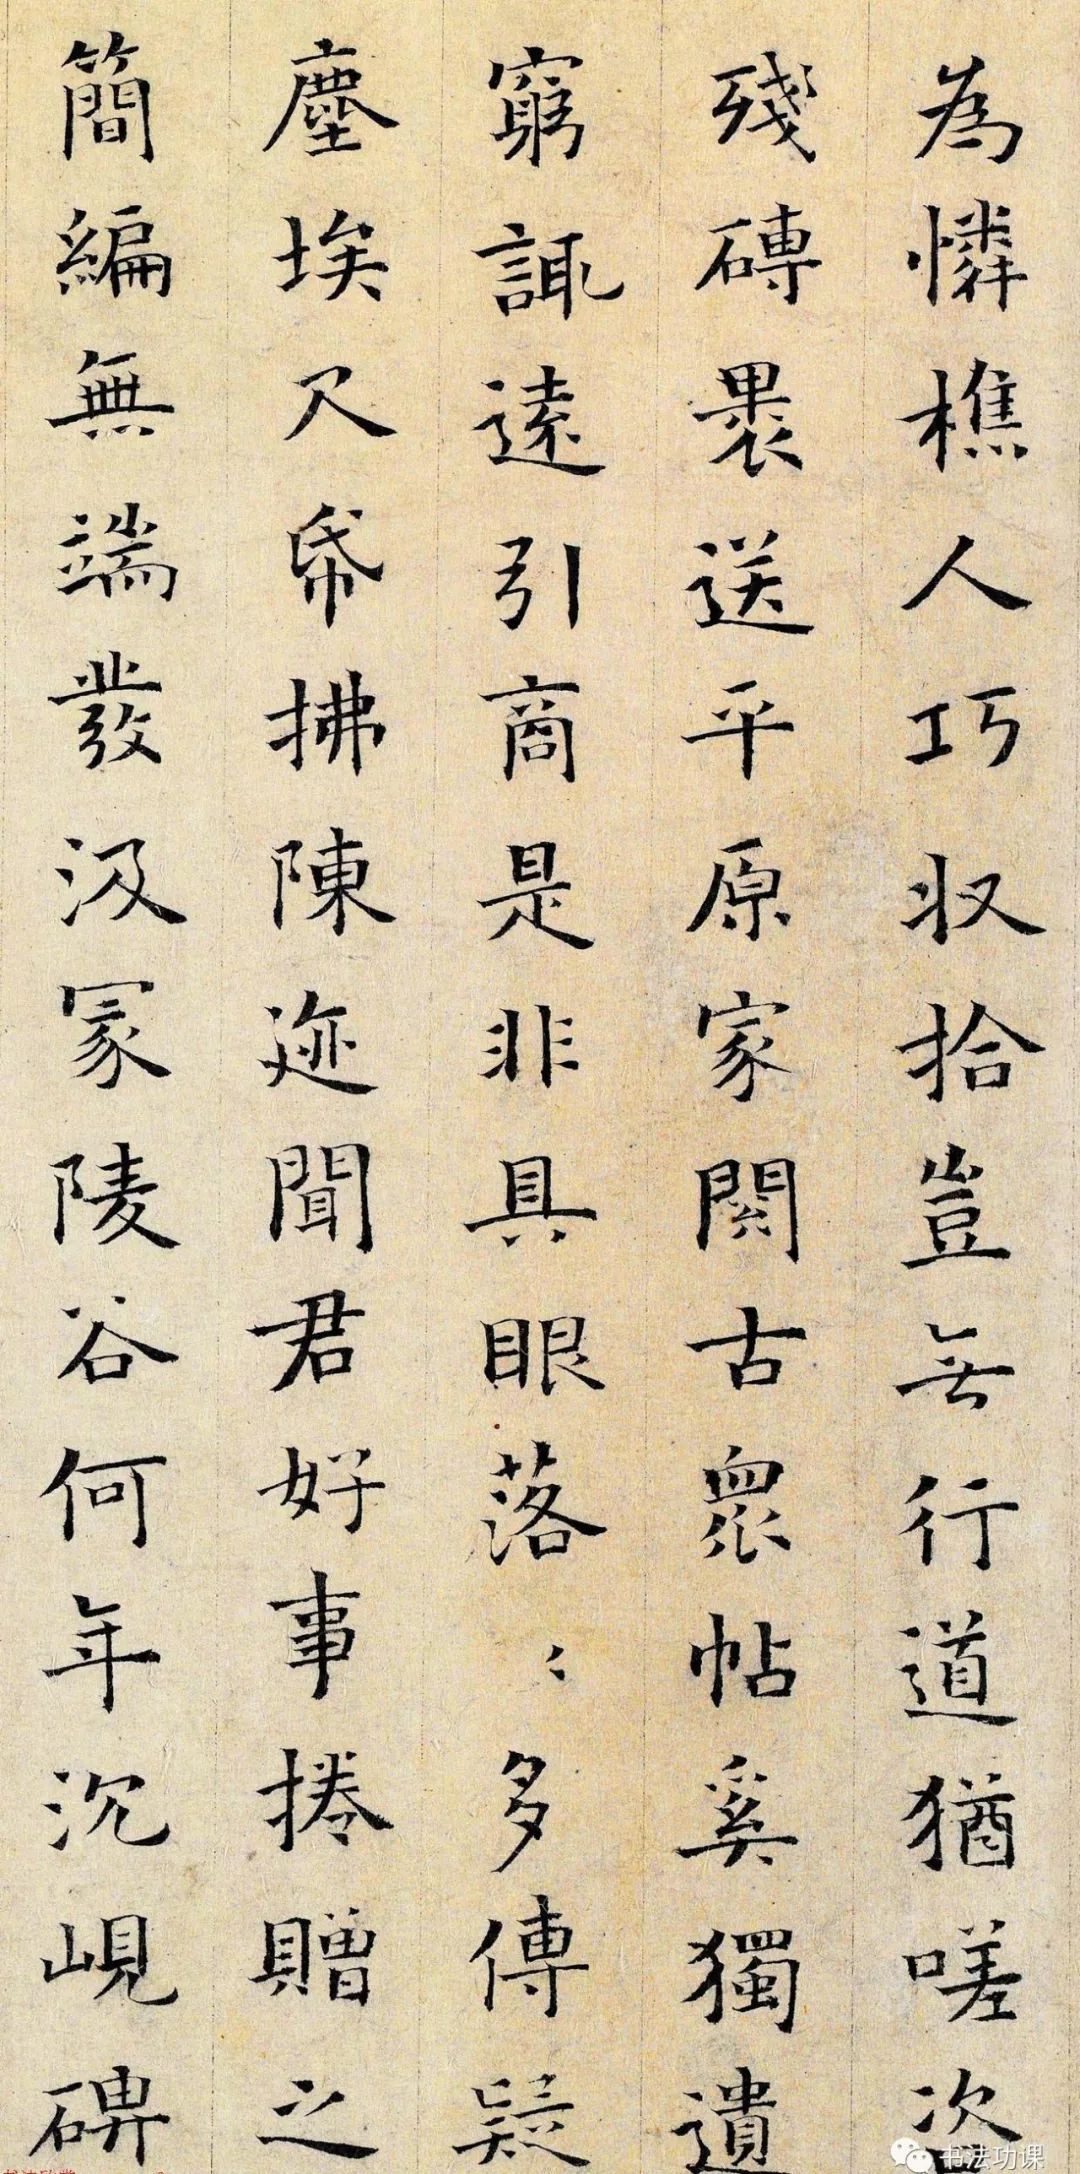 為憐樵人巧収拾豈無行道猶嗟
殘磚裹送平原家閱古眾帖奚獨遺
窮諏遠引商是非具眼落〻多傳疑
塵埃尺帋拂陳迹聞君好事捲贈之
簡編無端發汲冢陵谷何年沉峴碑
书法功课